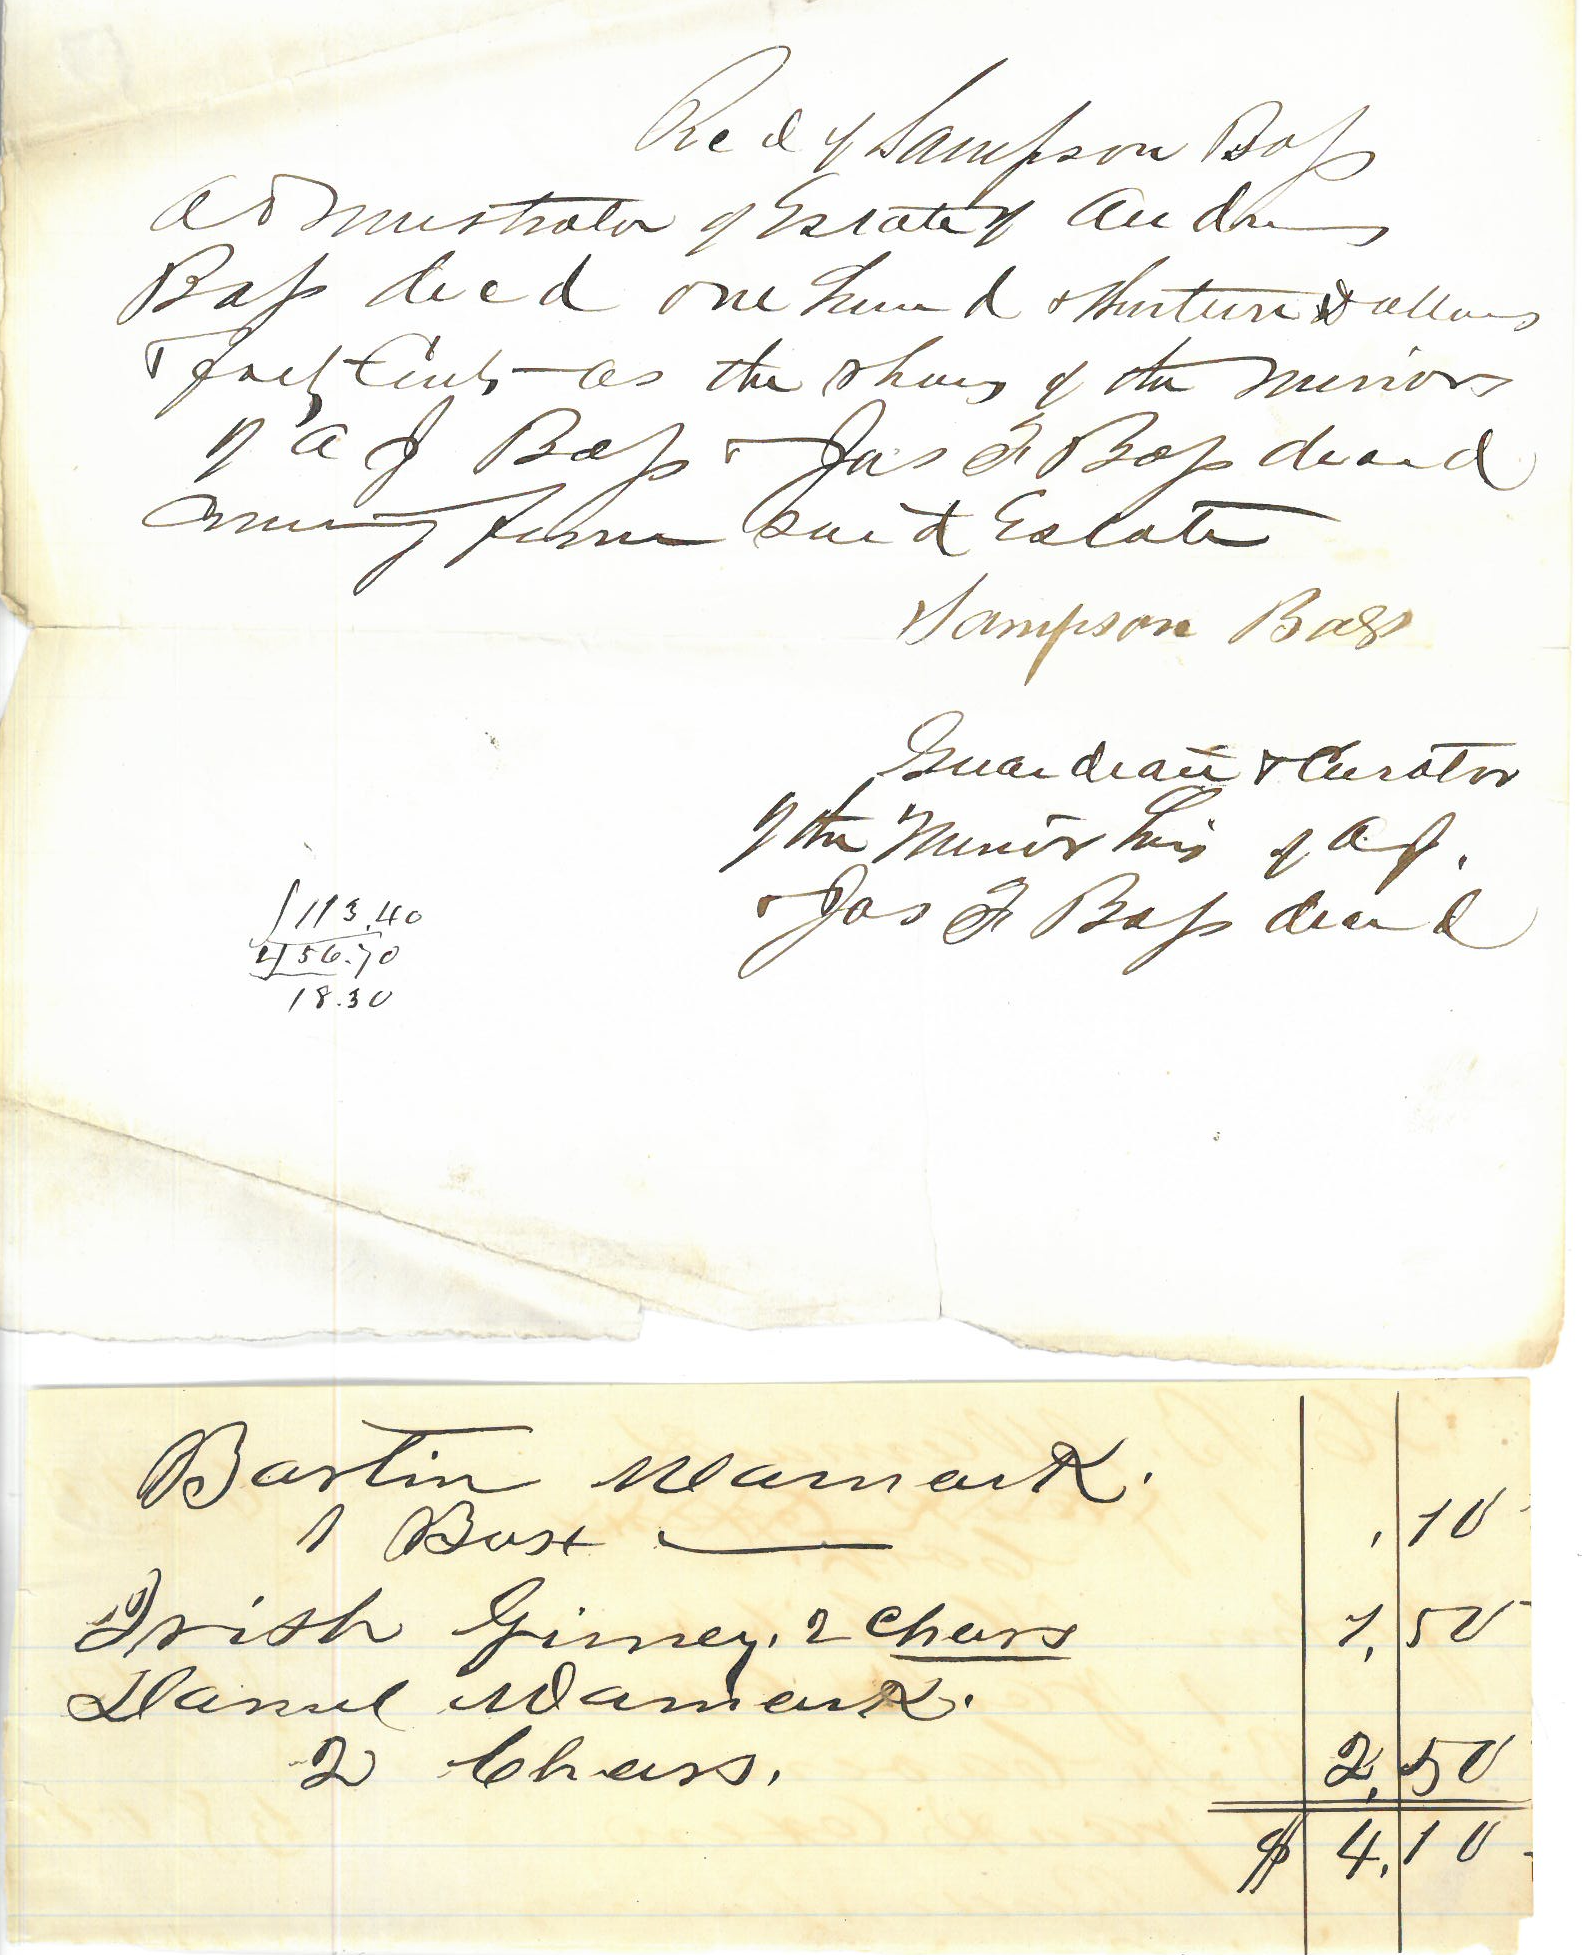 Recd of Sampson Bass
Administrator of Estate of Andrew
Bass decd one hund & thirteen Dollars
& forty Cents — as the shares of the minors
of A J Bass & Jas F Bass deceased
coming from said Estate
Sampson Bass
Guardian & Curator
of the Minor heirs of A J.
& Jas F Bass deceased
113.40
2 56.70
18.30
Bartin Wamack.
1 Box — .10
Irish Ginney. 2 Chars 1,50
Daniel Wamack.
2 Chars. 2,50
$ 4,10